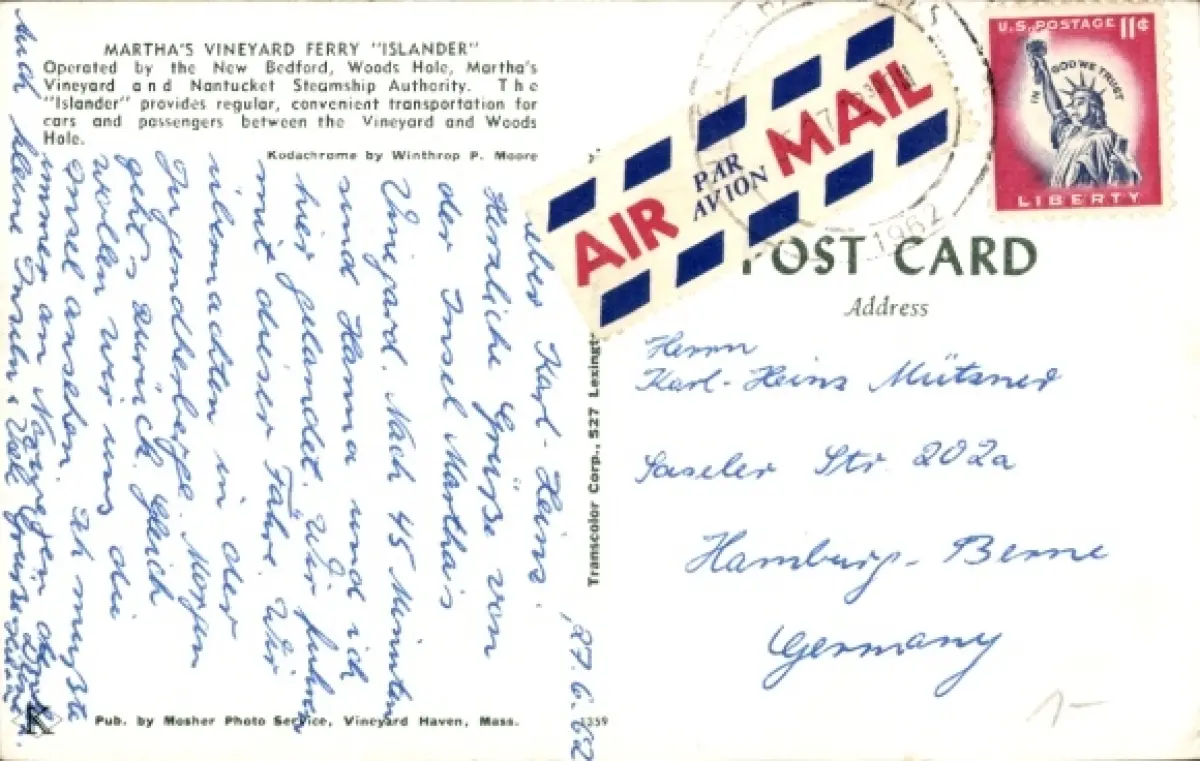 MARTHA'S VINEYARD FERRY "ISLANDER"
Operated by the New Bedford, Woods Hole, Martha's
Vineyard and Nantucket Steamship Authority. The
"Islander" provides regular, convenient transportation for
cars and passengers between the Vineyard and Woods
Hole.
Kodachrome by Winthrop P. Moore
27.6.62
Lieber Karl-Heinz.
Herzliche Grüße von
der Insel Martha's
Vineyard. Nach 45 Minuten
sind Hanna und ich
hier gelandet. Wir fuhren
mit dieser Fähre. Wir
übernachten in der
Jugendherberge. Morgen
geht's zurück. Gleich
wollen wir uns die
Insel ansehen. Ich mußte
immer an Norwegen
Pub. by Mosher Photo Service, Vineyard Haven, Mass.
1359
Transcolor Corp., 527
AIR MAIL
PAR
AVION
1962
U.S. POSTAGE 11¢
IN GOD WE TRUST
LIBERTY
POST CARD
Address
Herrn
Karl-Heinz Mützner
Saseler Str. 202a
Hamburg-Berne
Germany